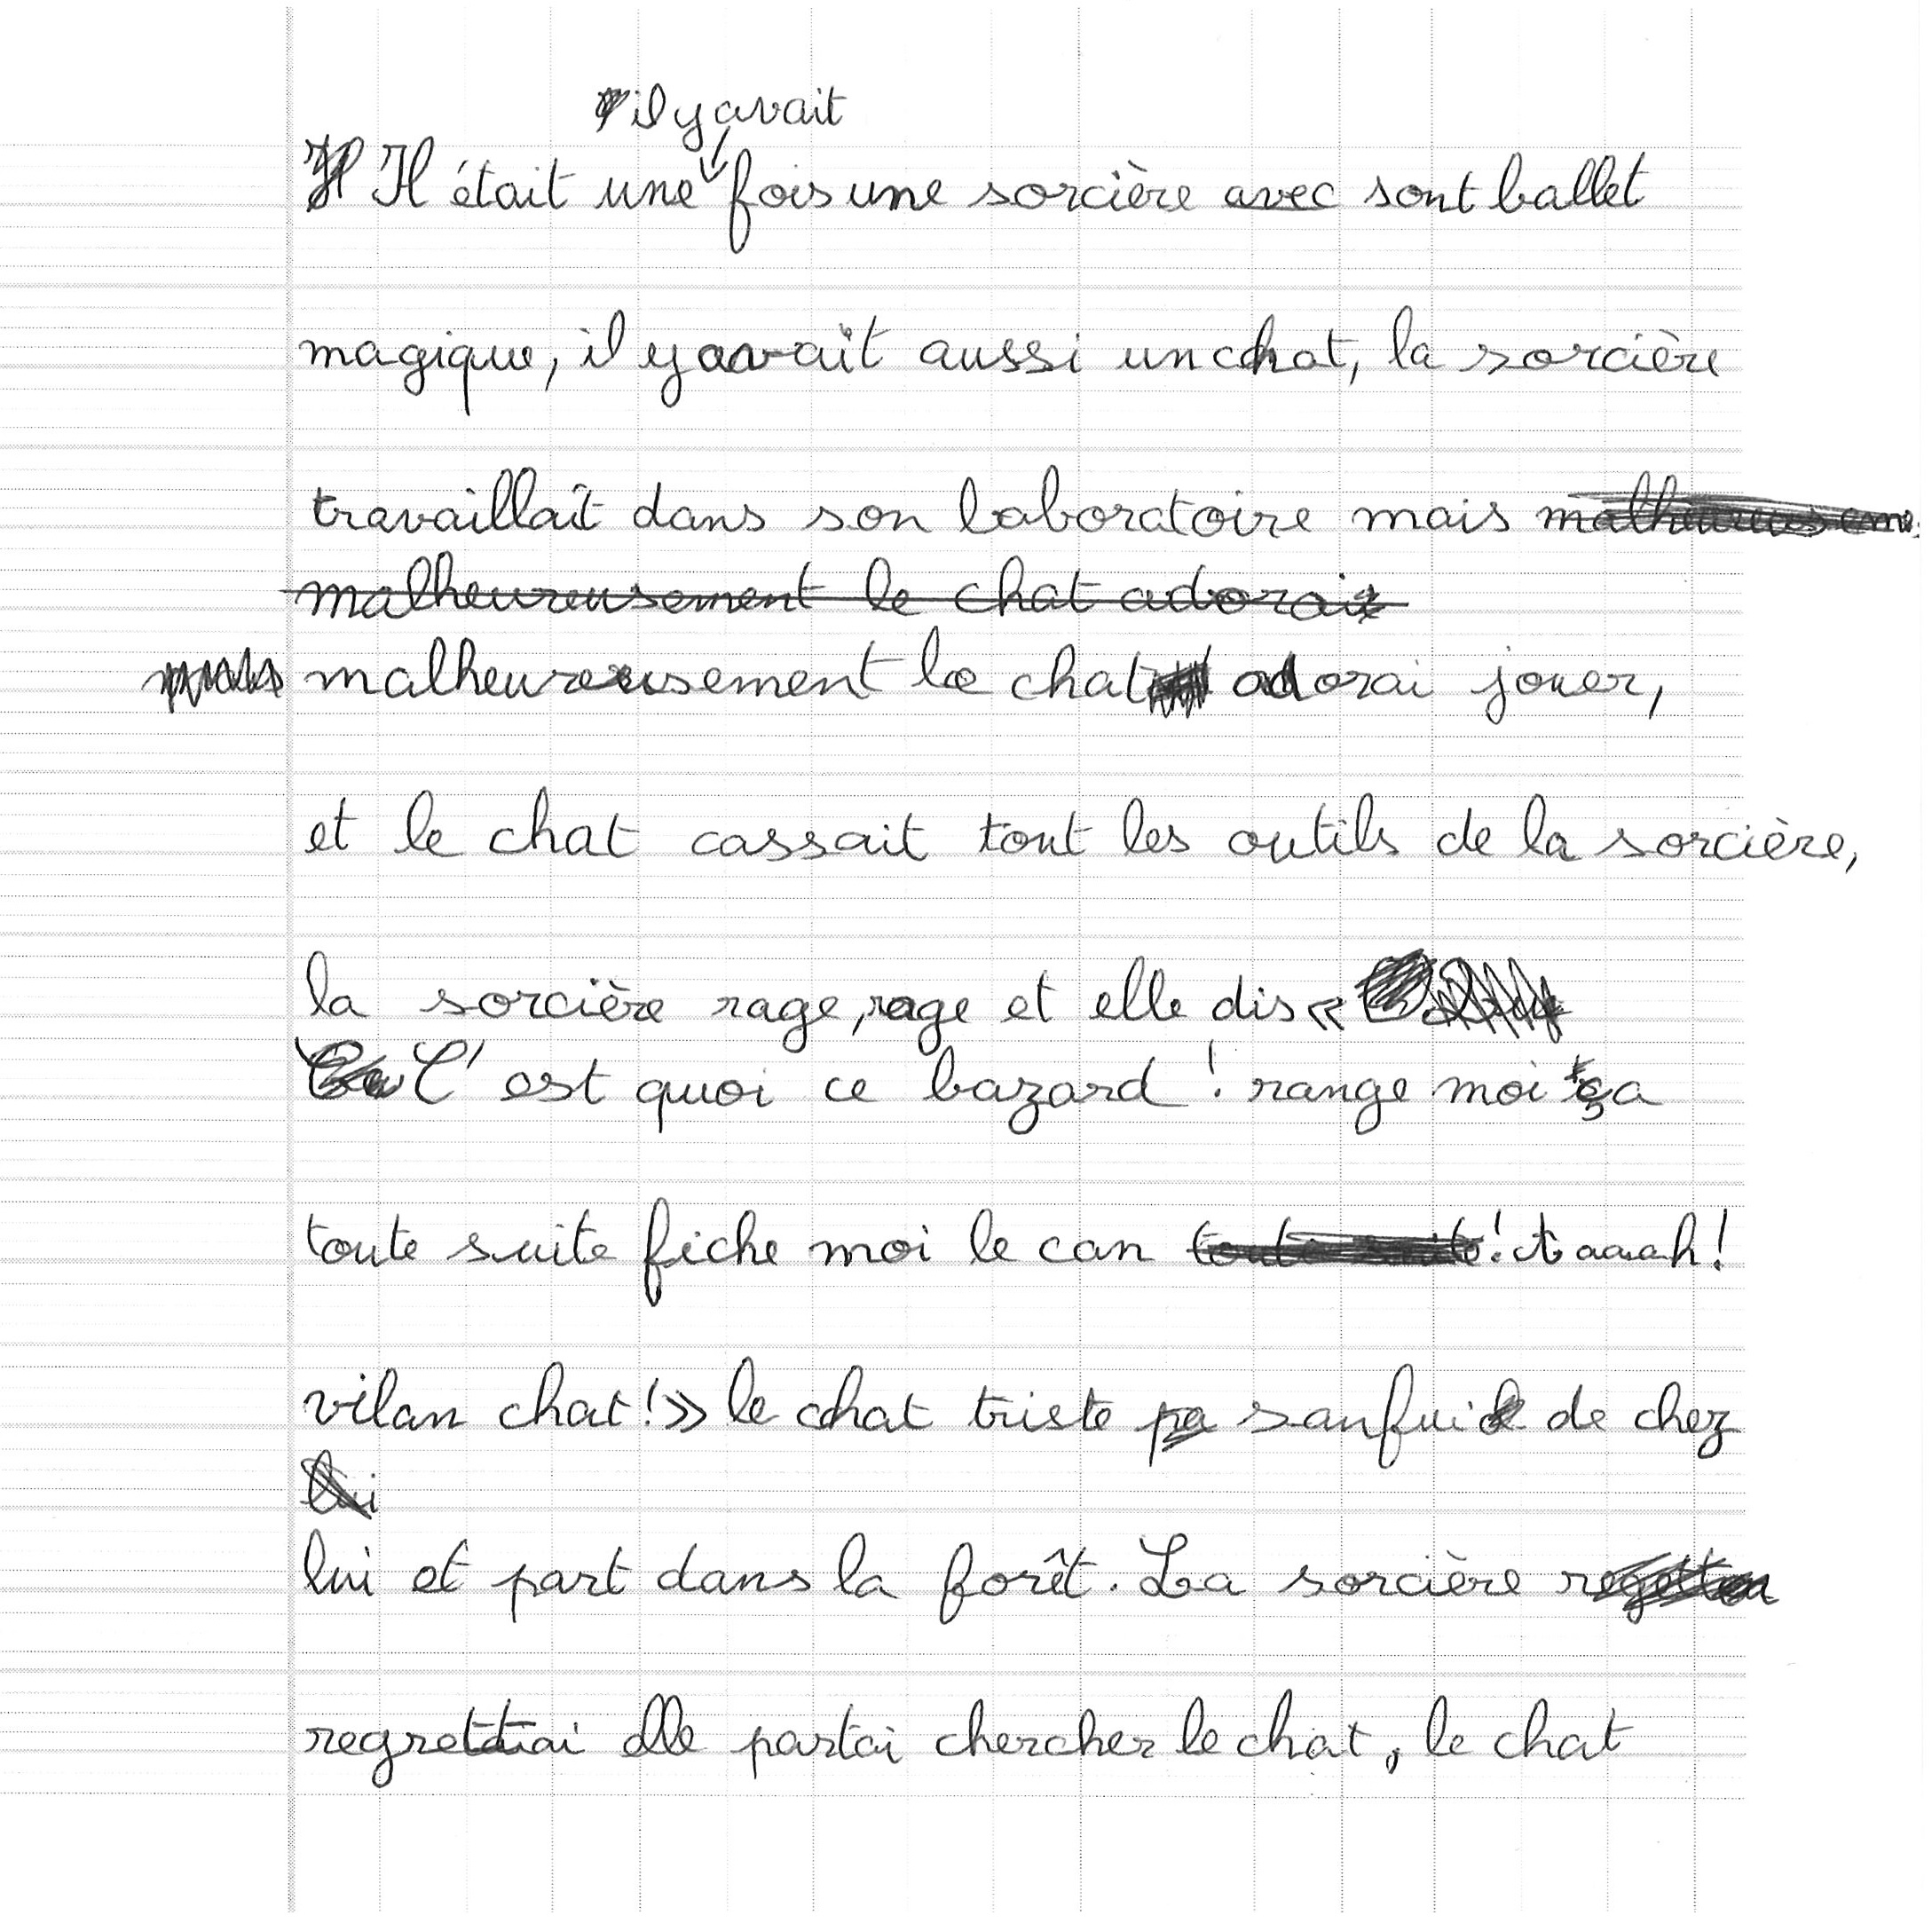 il y avait
Il était une fois une sorcière avec sont ballet
magique, il y avait aussi un chat, la sorcière
travaillait dans son laboratoire mais malheureuseme
malheureusement le chat adorait
mais malheureusement le chat adorai jouer,
et le chat cassait tout les outils de la sorcière,
la sorcière rage, rage et elle dis «
C'est quoi ce bazard ! range moi ça
toute suite fiche moi le can toute suite ! aaah !
vilan chat ! » le chat triste pa sanfui de chez
lui
lui et part dans la forêt. La sorcière
regrettai elle partai chercher le chat, le chat